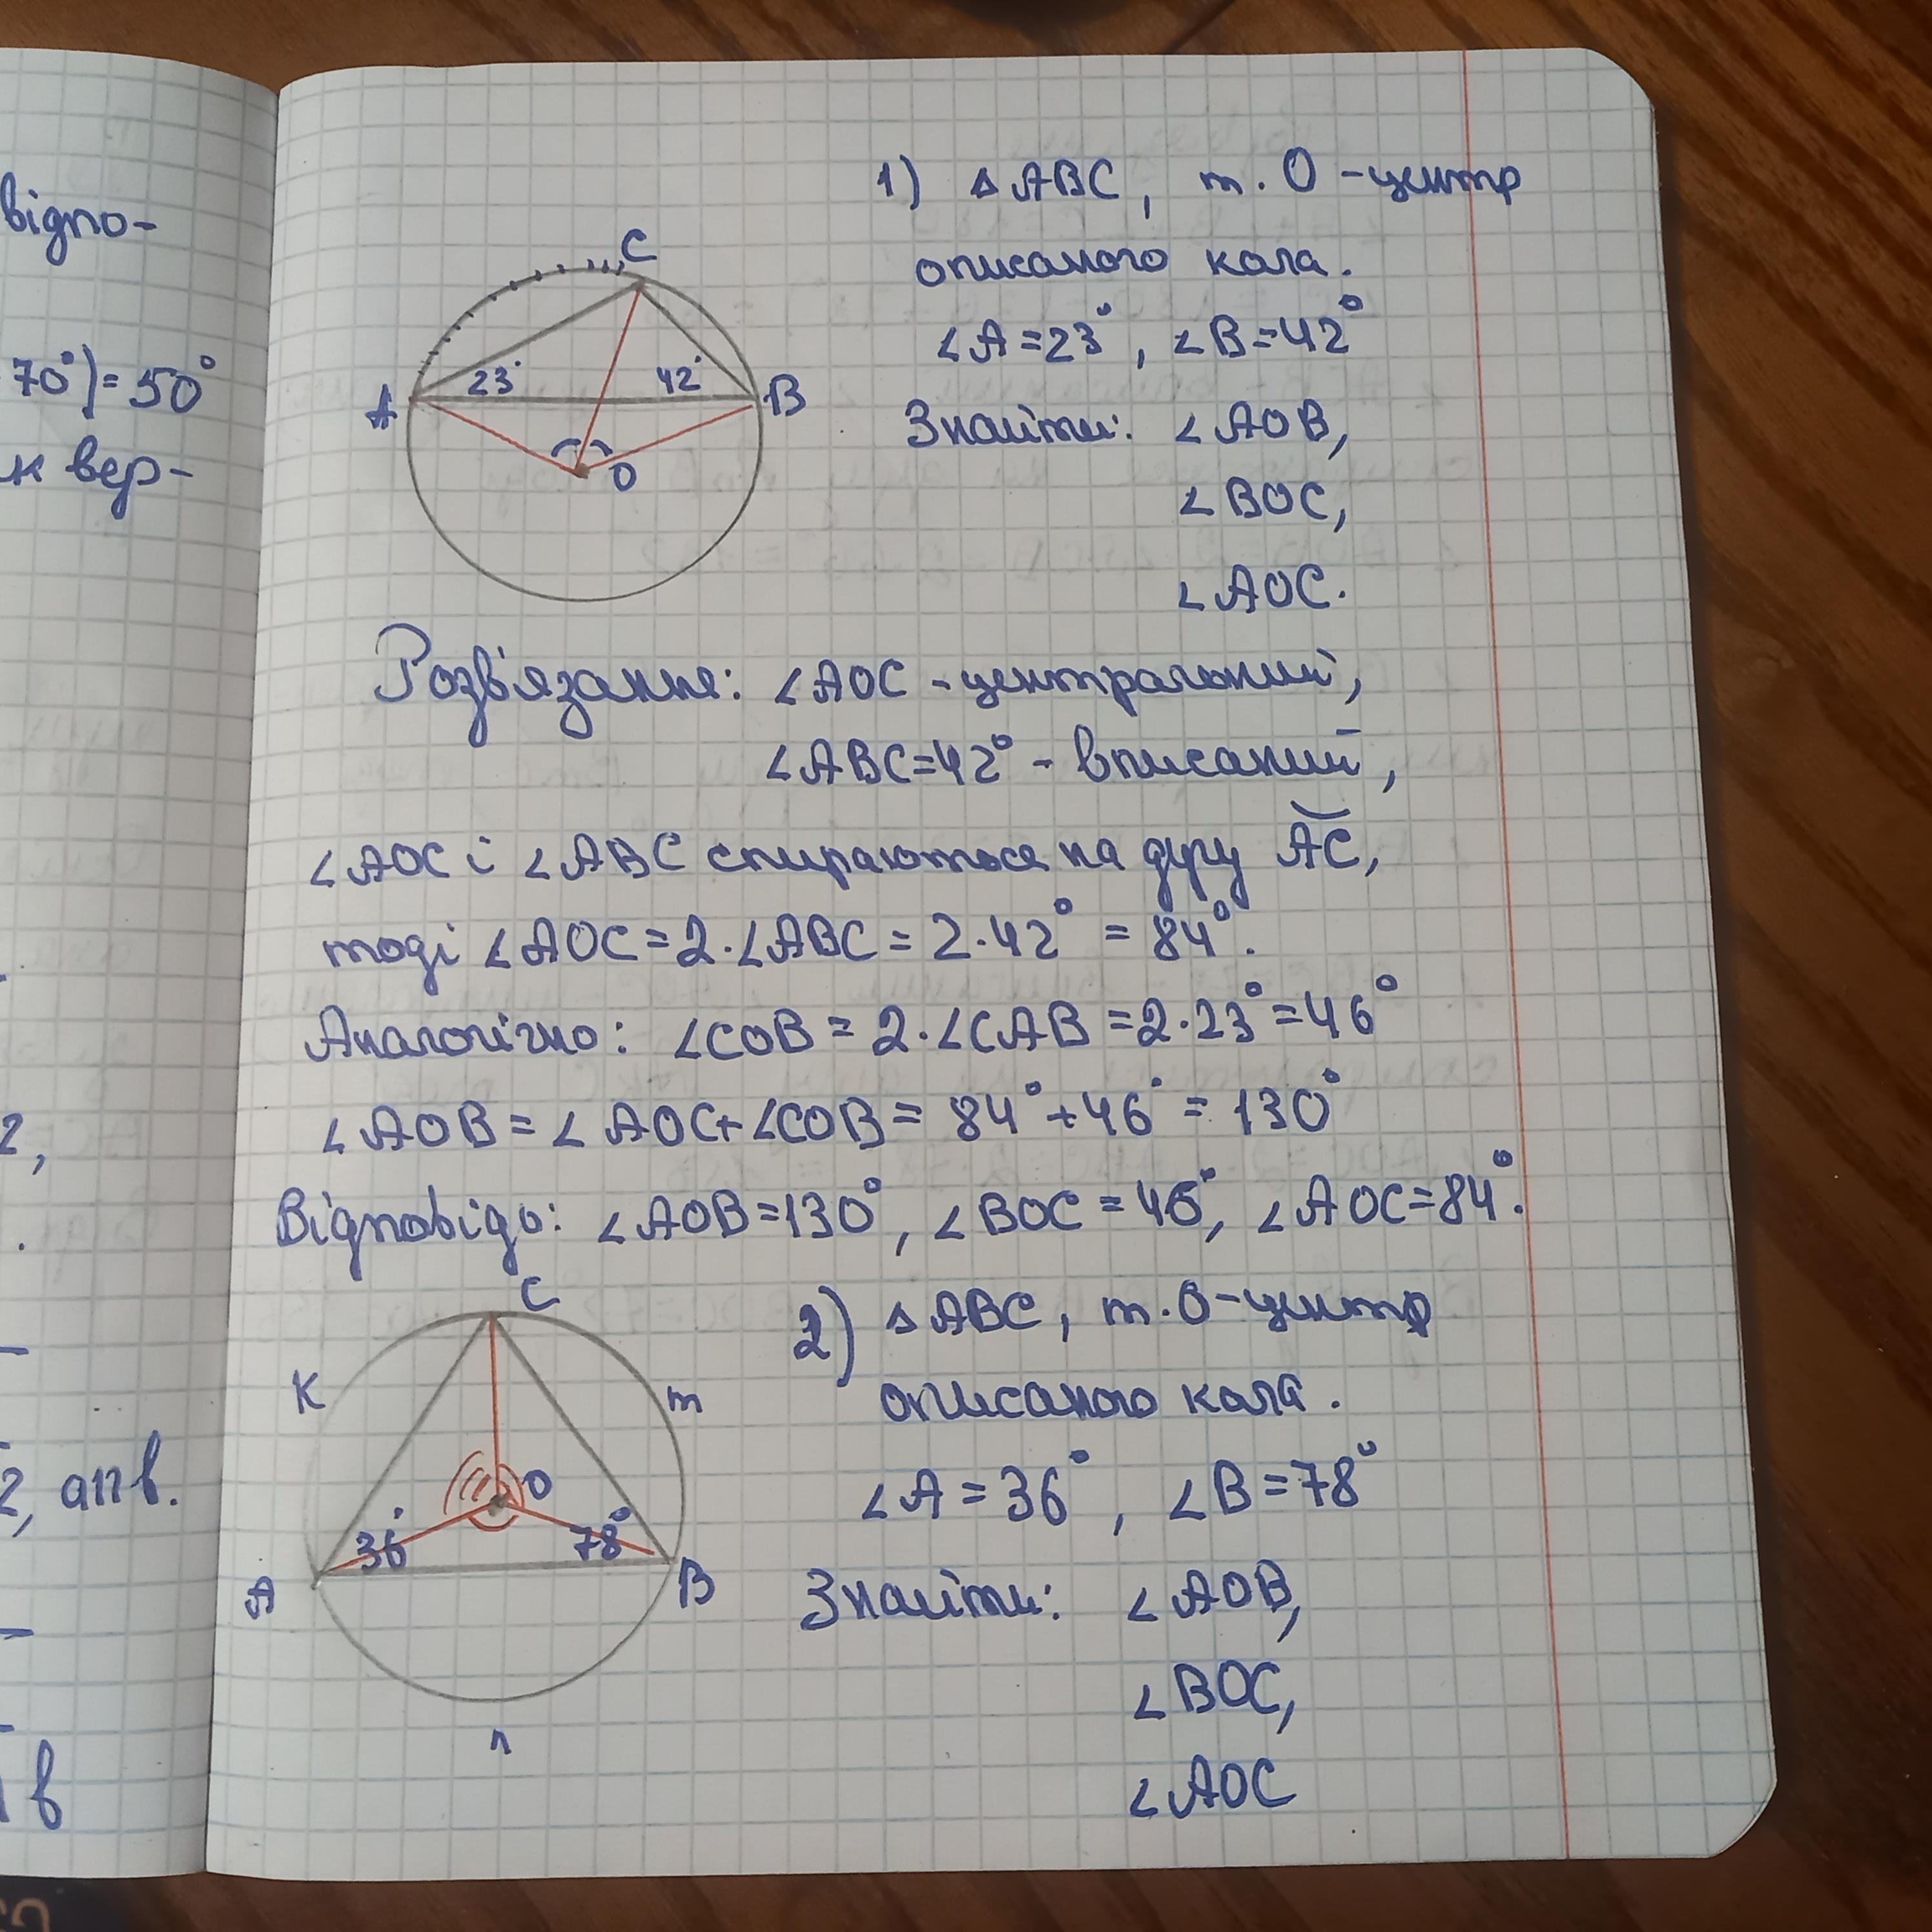 відпо-
70°)=50°
к вер-
2,
2, АПВ.
в
C
23° 42°
A B
O
1) △ABC, т. O -центр
описаного кола.
∠A=23°, ∠B=42°
Знайти: ∠AOB,
∠BOC,
∠AOC.
Розв'язання: ∠AOC -центральний,
∠ABC=42° - вписаний,
∠AOC і ∠ABC спираються на дугу AC,
тоді ∠AOC=2·∠ABC=2·42°=84°.
Аналогічно: ∠COB=2·∠CAB=2·23°=46°
∠AOB=∠AOC+∠COB=84°+46°=130°
Відповідь: ∠AOB=130°, ∠BOC=46°, ∠AOC=84°.
C
K m
O
36° 78°
A B
n
2) △ABC, т. O-центр
описаного кола.
∠A=36°, ∠B=78°
Знайти: ∠AOB,
∠BOC,
∠AOC